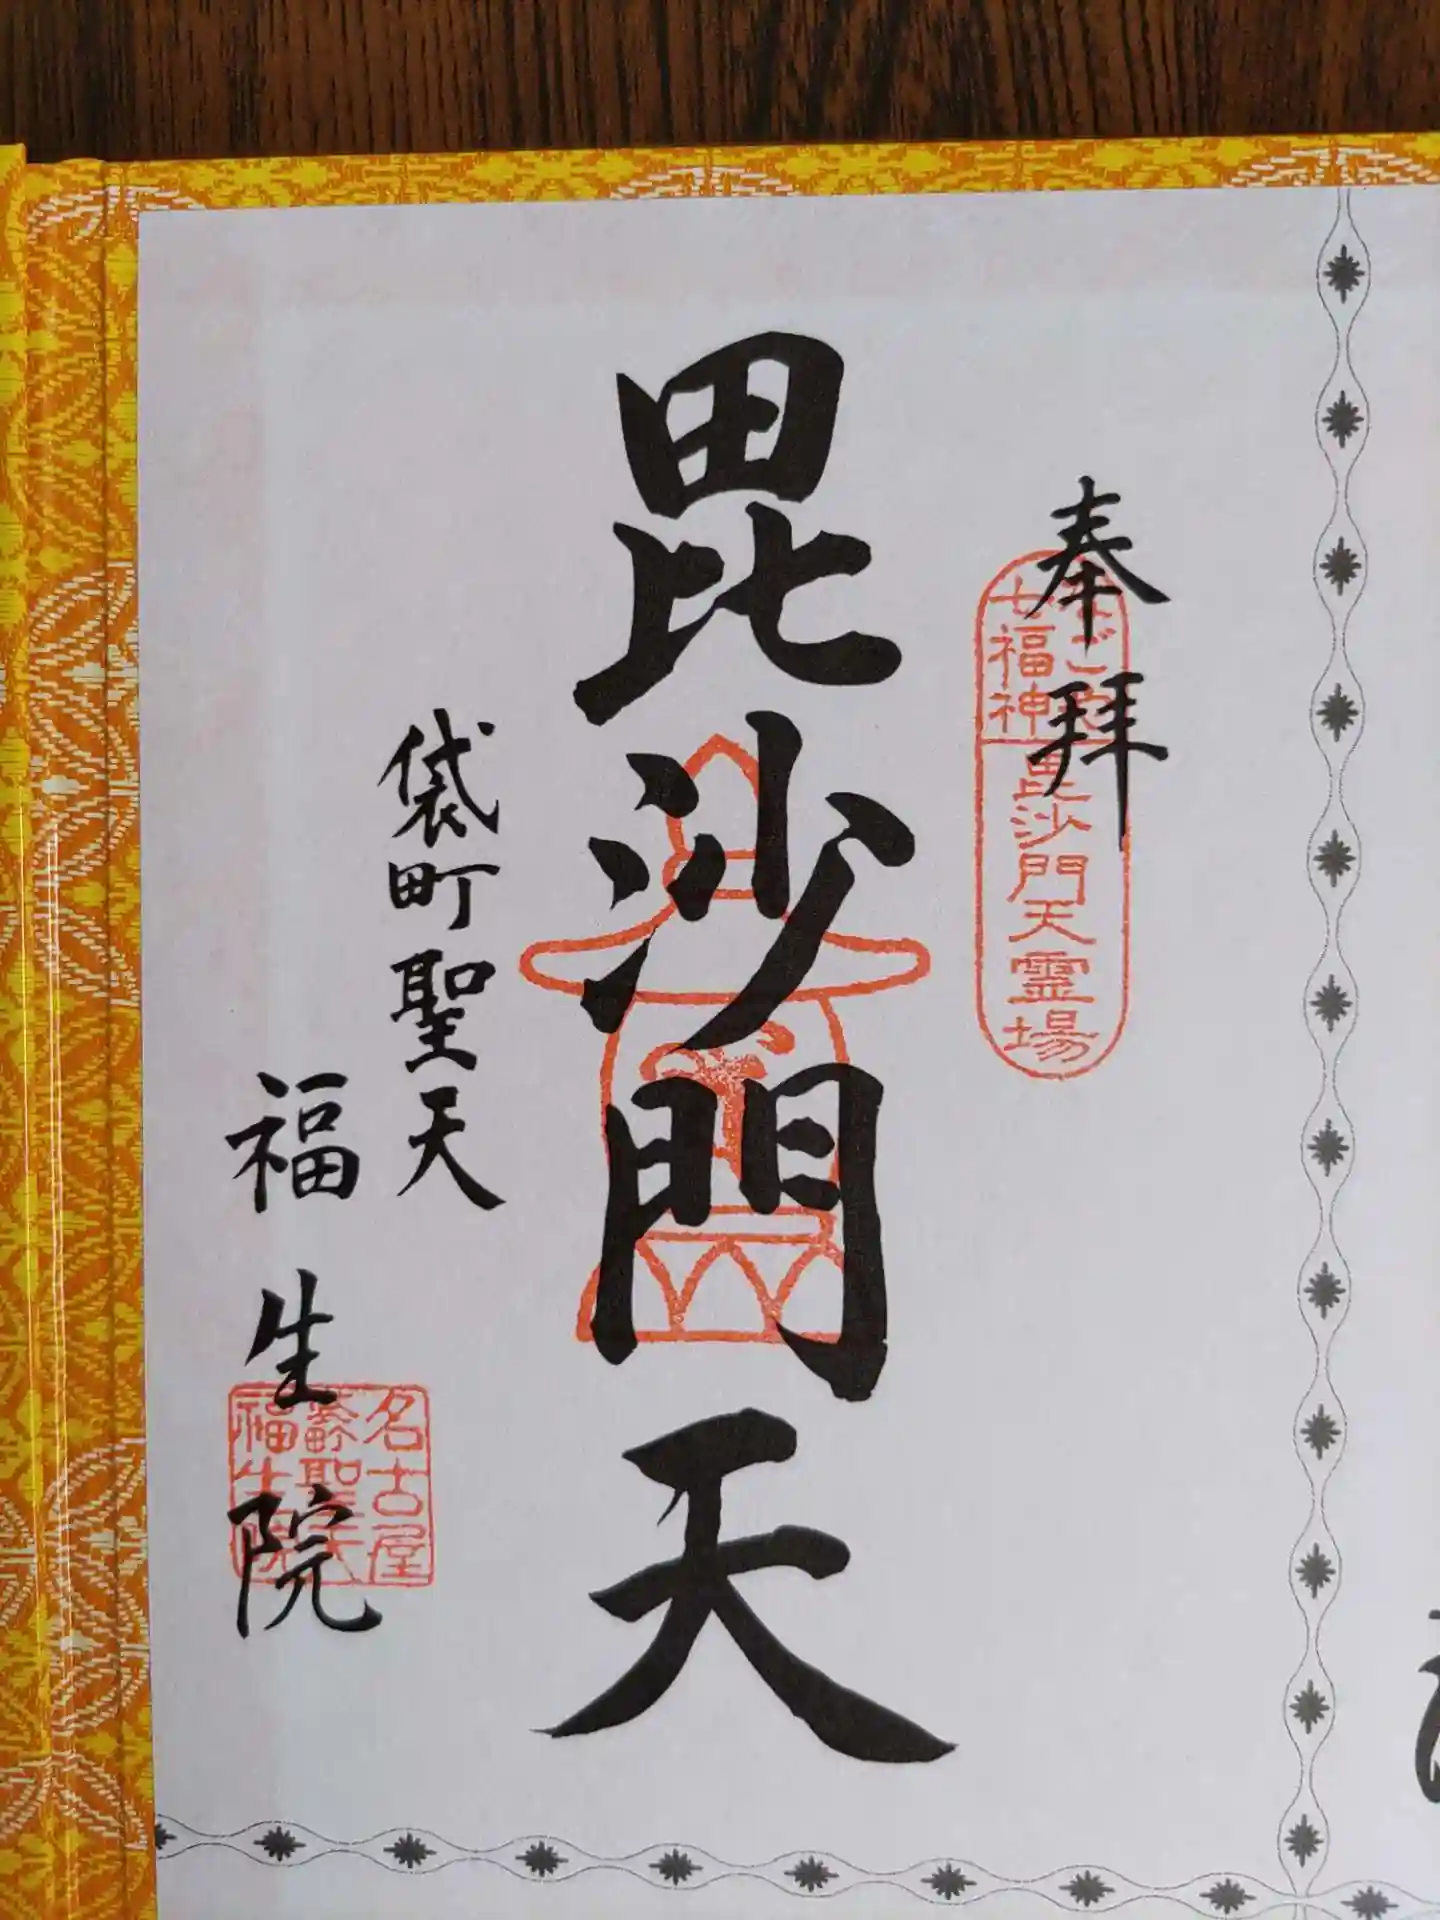 奉拝
なごや
七福神
毘沙門天霊場
毘沙門天
袋町聖天
福生院
名古屋
聖天
福生院